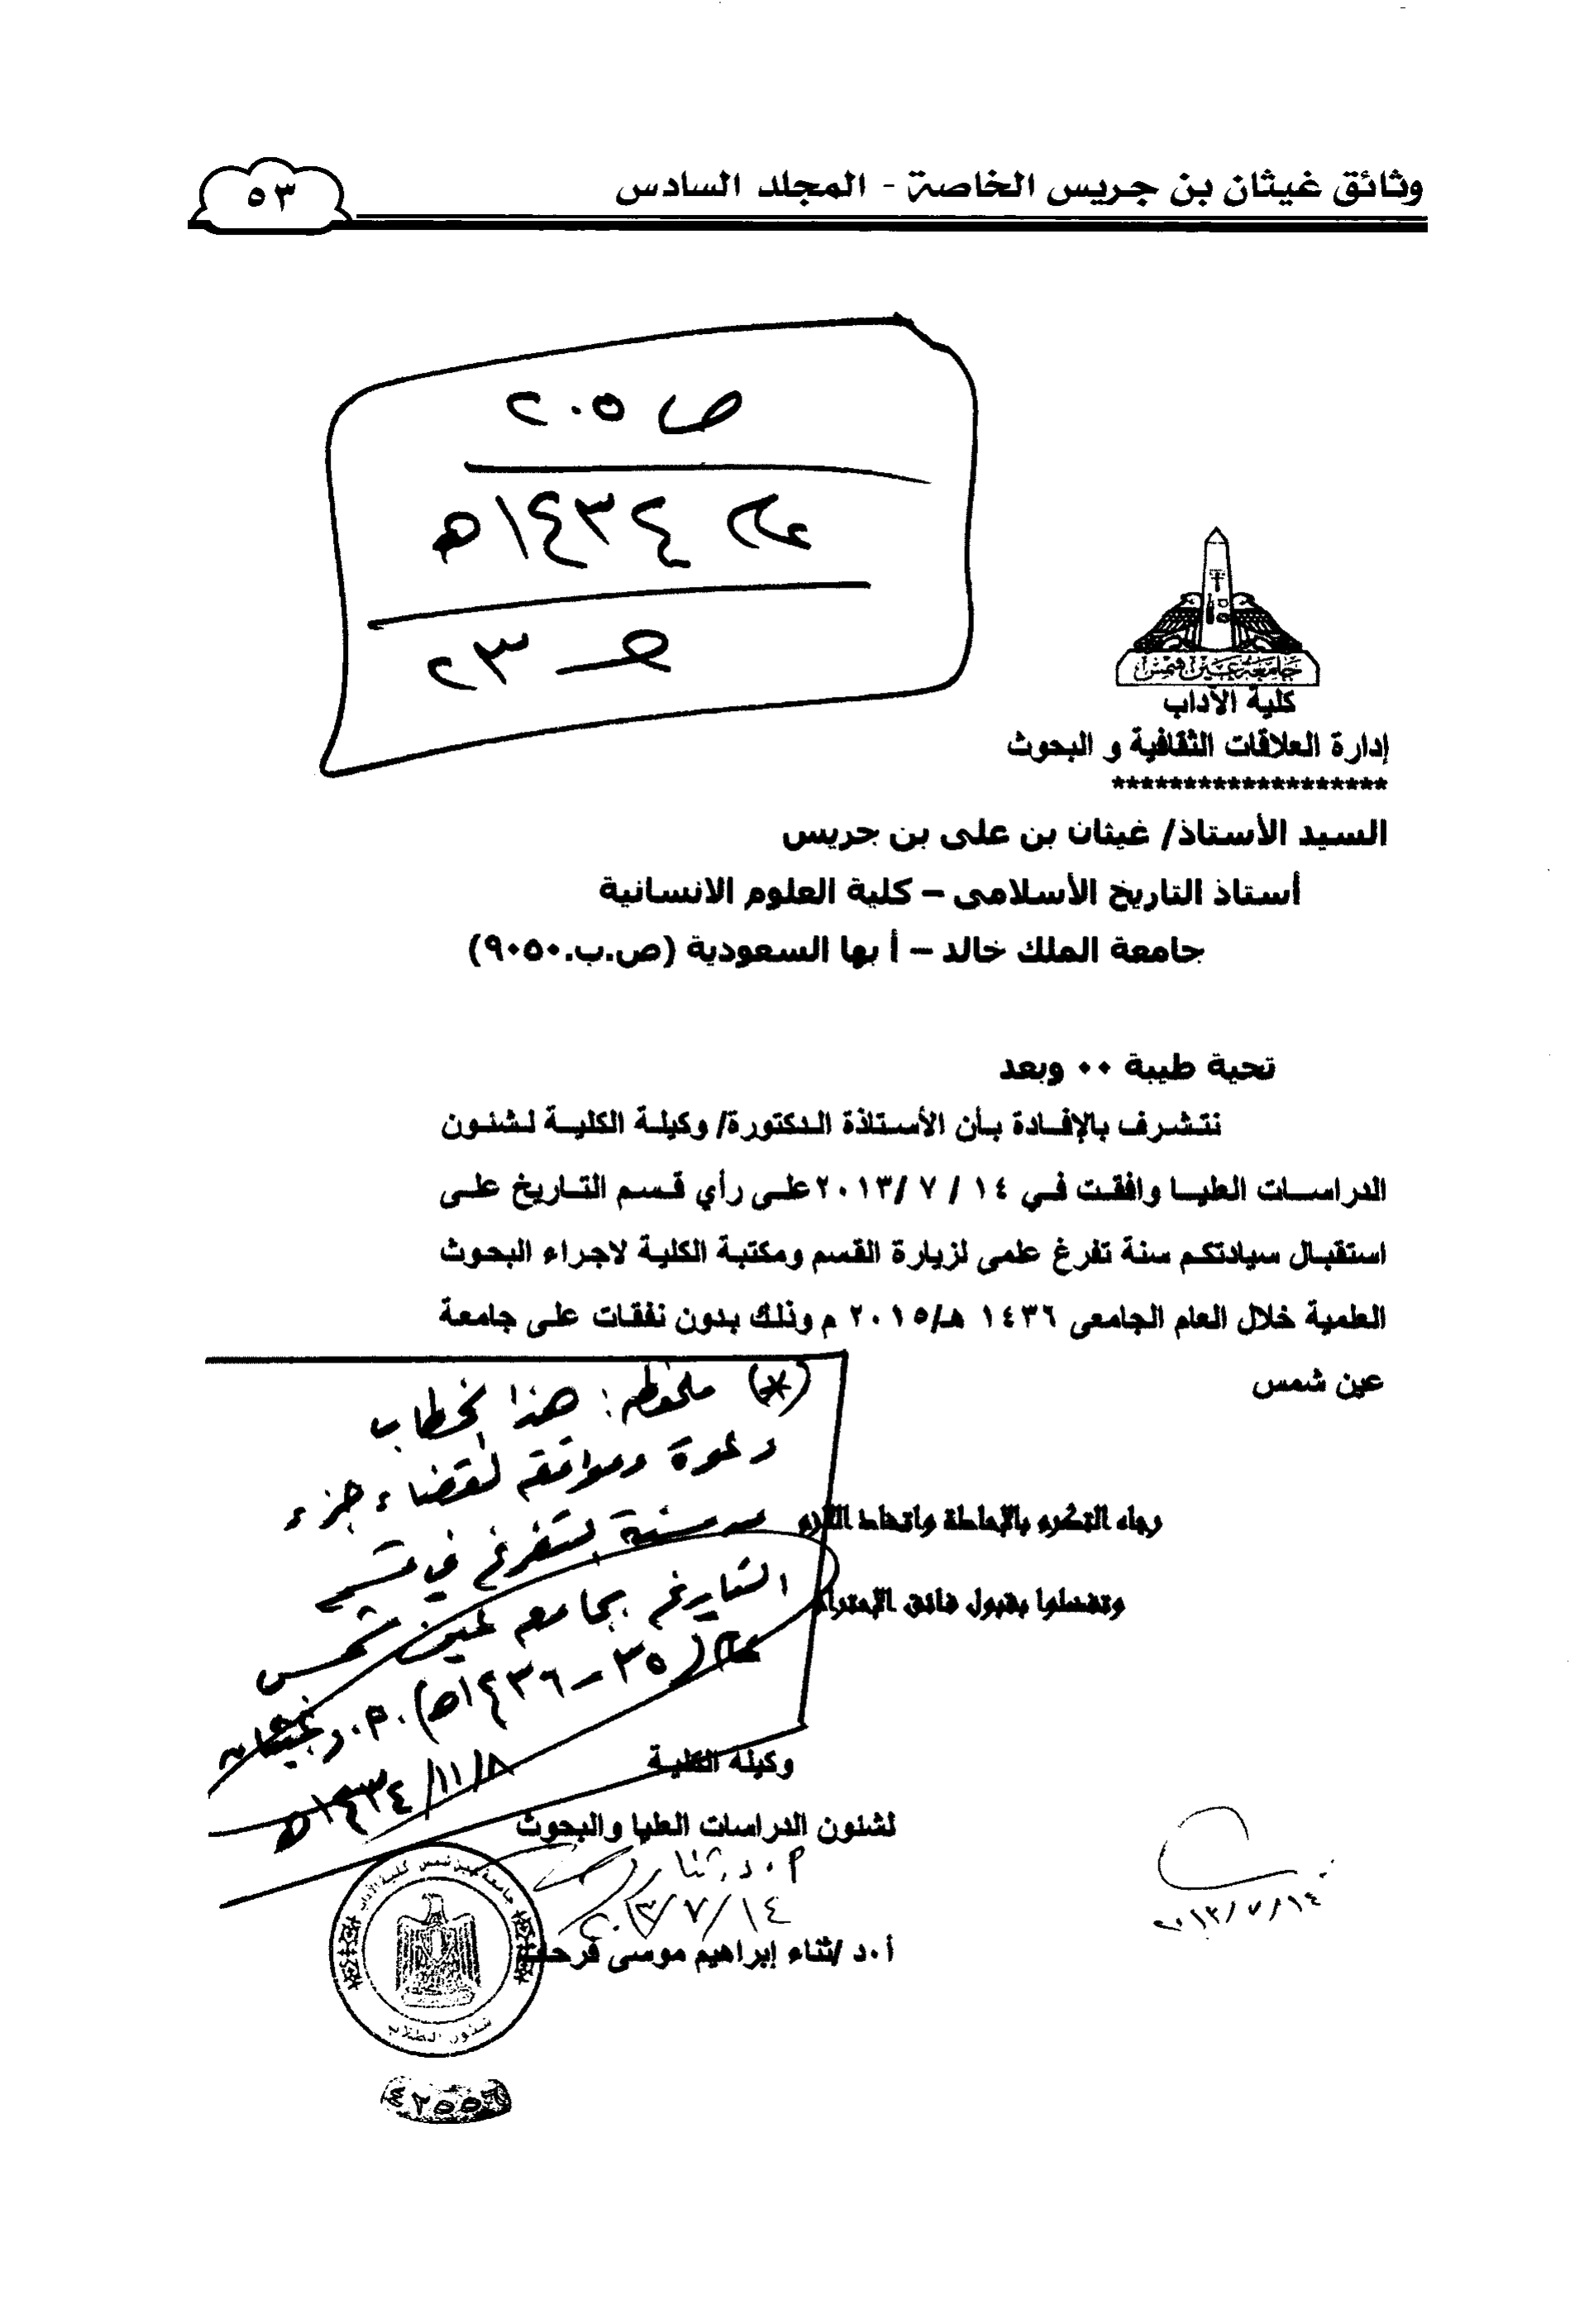 وثائق غيثان بن جريس الخاصة - المجلد السادس
٥٣
ص ٢٠٥
عام ١٤٣٤هـ
صـ ٢٣
جامعة عين شمس
كلية الآداب
إدارة العلاقات الثقافية و البحوث
*******************
السيد الأستاذ/ غيثان بن على بن جريس
أستاذ التاريخ الأسلامى – كلية العلوم الانسانية
جامعة الملك خالد – أ بها السعودية (ص.ب.٩٠٥٠)
تحية طيبة ٠٠ وبعد
نتشرف بالإفادة بأن الأستاذة الدكتورة/ وكيلة الكلية لشئون
الدراسات العليا وافقت في ١٤ / ٧ /٢٠١٣على رأي قسم التاريخ على
استقبال سيادتكم سنة تفرغ علمى لزيارة القسم ومكتبة الكلية لاجراء البحوث
العلمية خلال العام الجامعى ١٤٣٦ هـ/٢٠١٥ م وذلك بدون نفقات على جامعة
عين شمس
(*) ملحوظة: هذا خطاب
دعوة وموافقة لقضاء جزء
من سنة التفرغ في قسم
التاريخ بجامعة عين شمس
عام (٣٥-١٤٣٦هـ). أ.د. غيثان
٨/١١/١٤٣٤هـ
رجاء التكرم بالإحاطة واتخاذ اللازم
وتفضلوا بقبول فائق الإحترام
وكيلة الكلية
لشئون الدراسات العليا والبحوث
أ.د. ثناء
١٤/٧/٢٠١٣
أ.د /ثناء إبراهيم موسى فرحات
٢٠١٣/٧/١٤
جامعة عين شمس كلية الآداب
شئون الطلاب